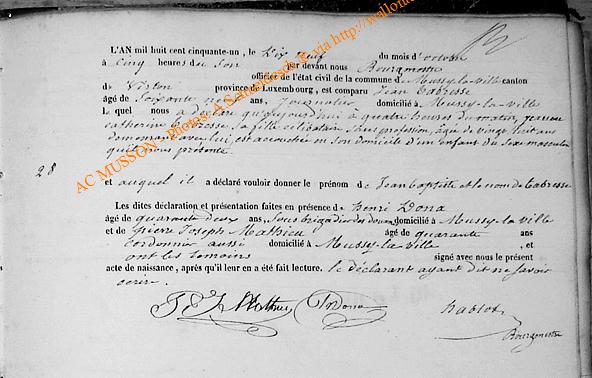 L'AN mil huit cent cinquante-un, le Dix neuf du mois d'octobre
à Cinq heures du Soir par devant nous Bourgmestre
officier de l'état civil de la commune de Mussy-la-ville canton
de Virton province de Luxembourg, est comparu Jean Cabresse
âgé de Soixante neuf ans, Journalier domicilié à Mussy-la-ville
Lequel nous a déclaré qu'aujourd'hui à quatre heures du matin, jeanne
catherine Cabresse sa fille célibataire Sans profession, âgée de vingt huit ans
demeurant avec lui, est accouchée en son domicile d'un enfant du Sexe masculin
qu'il nous présente
28
et auquel il a déclaré vouloir donner le prénom de Jean baptiste et le nom de Cabresse
Les dites déclaration et présentation faites en présence de henri Dona
âgé de quarante deux ans, Sous brigadier des douanes domicilié à Mussy la ville
et de pierre Joseph Mathieu âgé de quarante ans
Cordonnier aussi domicilié à Mussy-la-ville, et
ont les temoins signé avec nous le présent
acte de naissance, après qu'il leur en a été fait lecture. le déclarant ayant dit ne savoir
écrire.
P J Mathieu Dona hablot
Bourgmestre
AC MUSSON - Photos: A.S via http://wallon